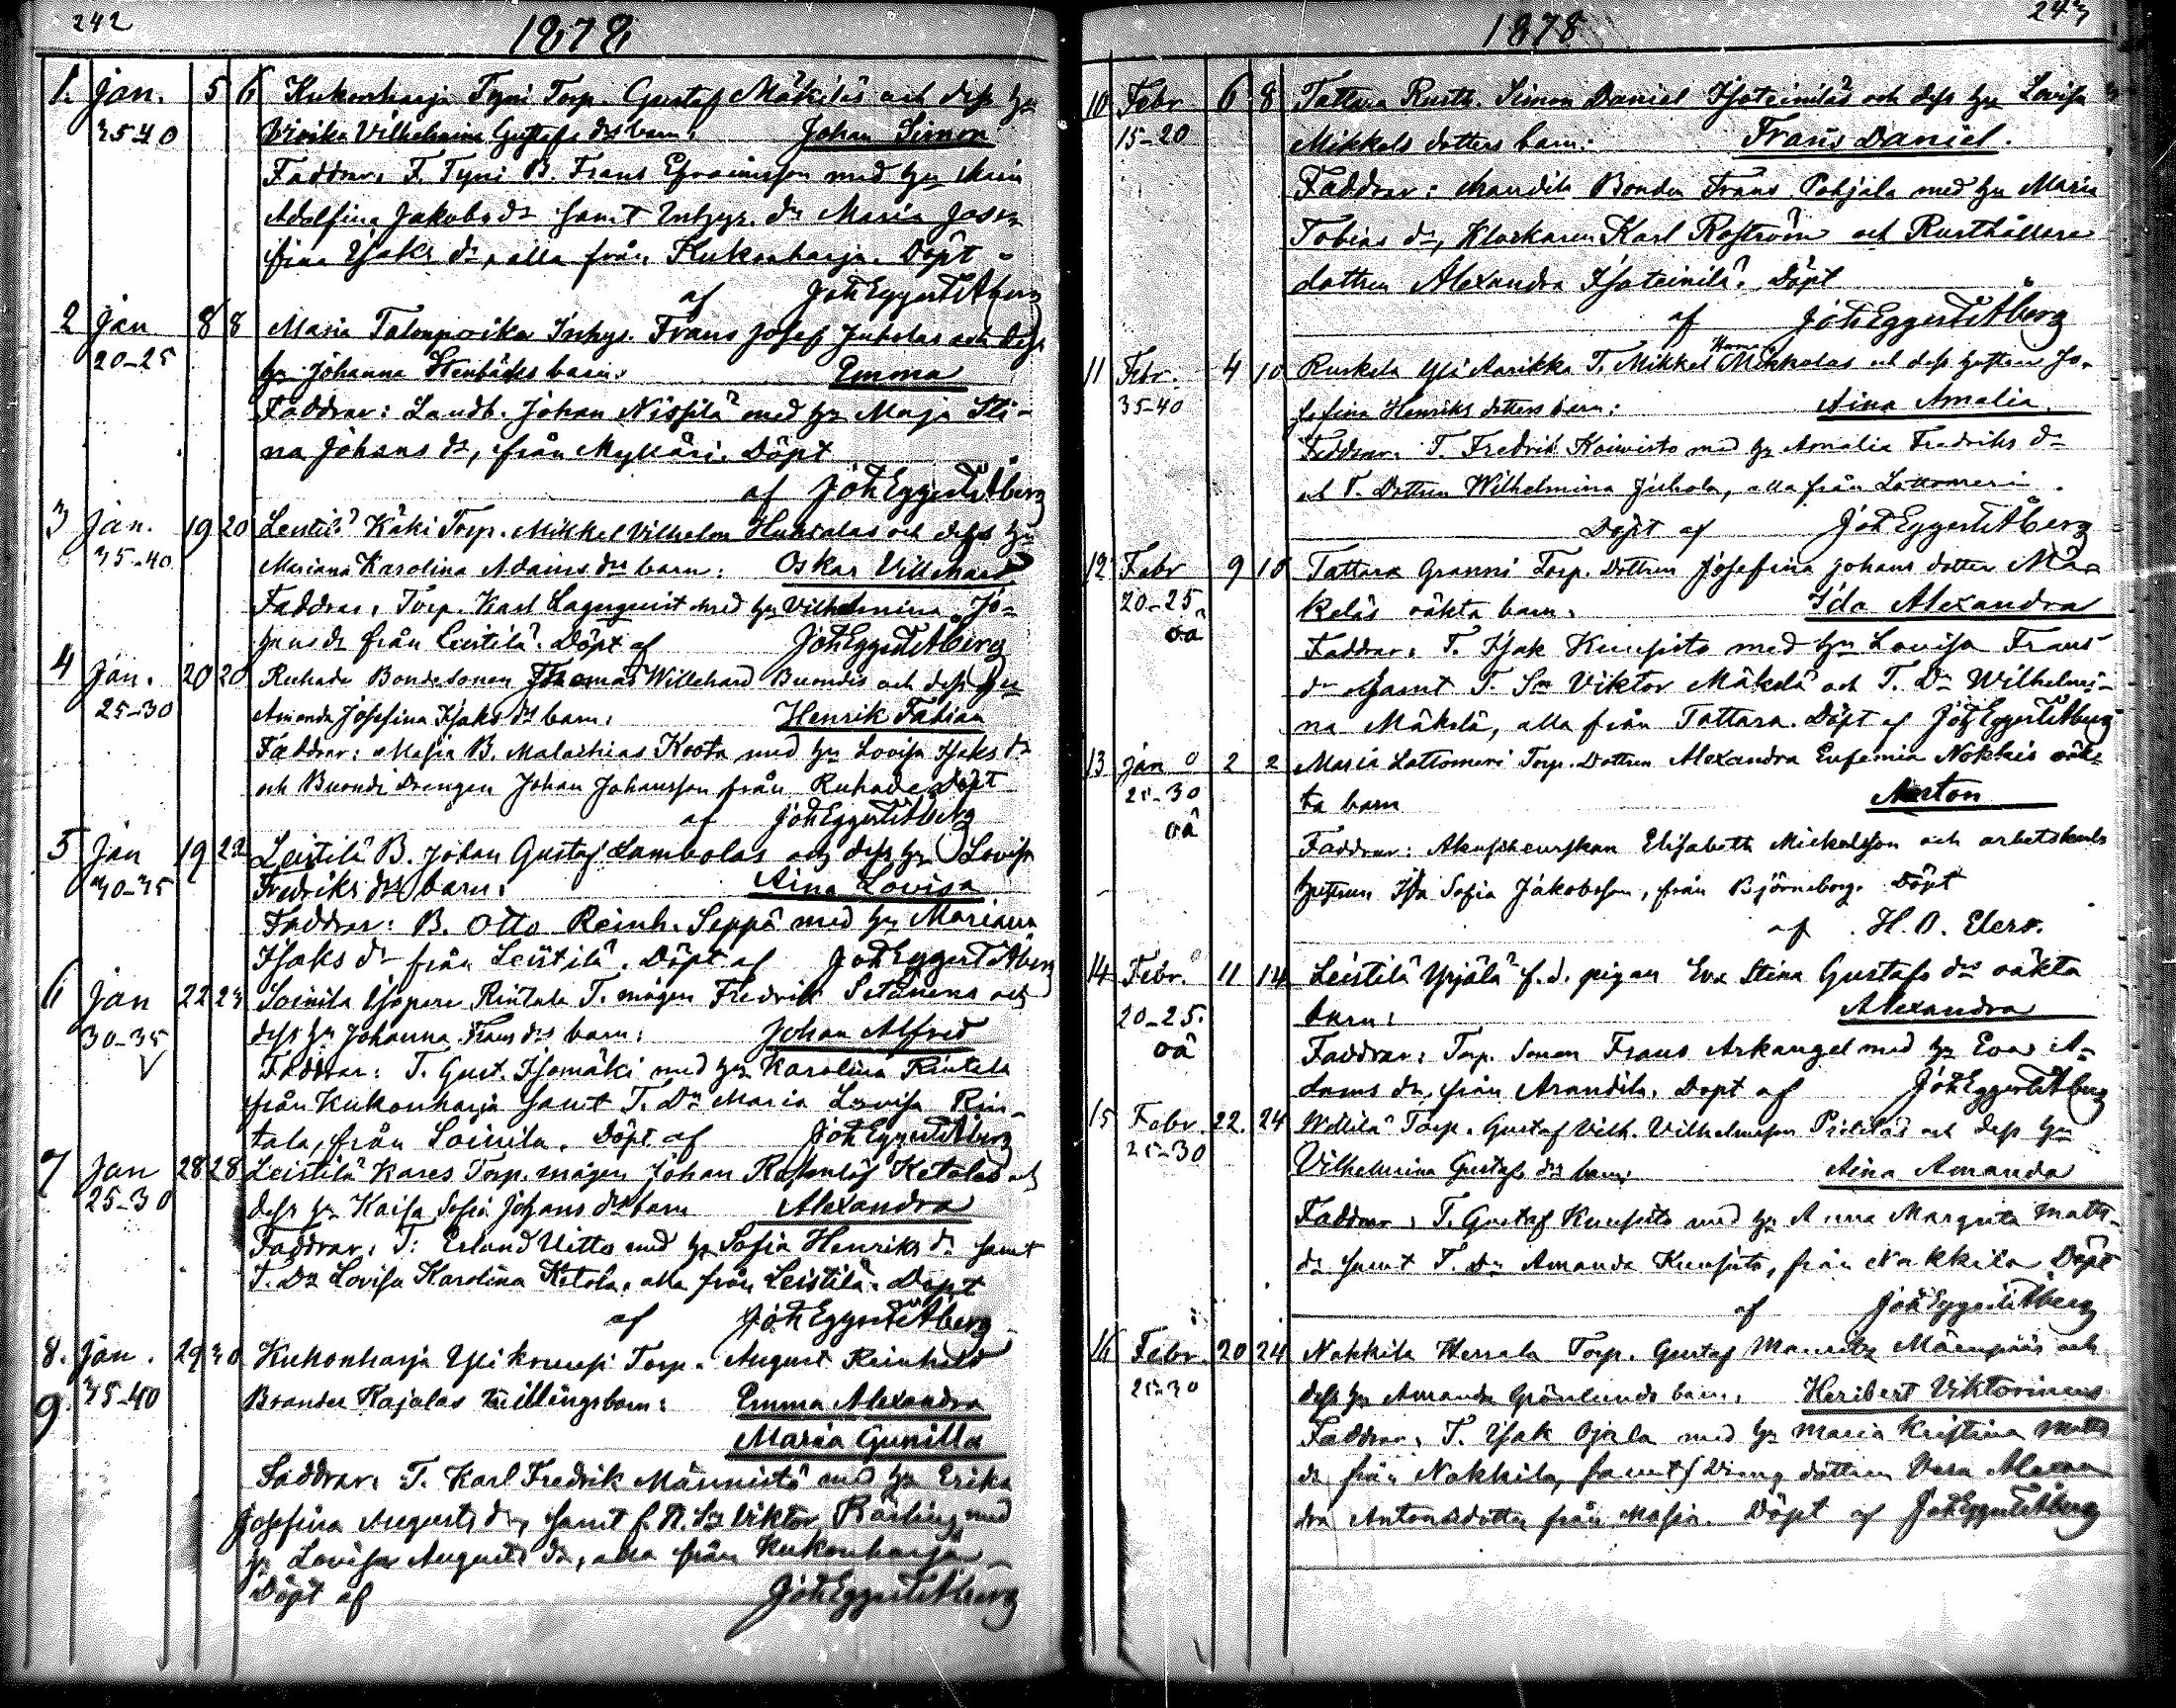 242
1878
1. Jan. 5 6 Kukonharja Tyni Torp. Gustaf Mäkiläs och dess hu
35-40 Vivika Vilhelmina Gustafs drs barn: Johan Simon
Faddrar: F. Tyni B. Frans Efraimsson med hu
Adolfina Jakobs dr samt Inhys. dr Maria Jose-
fina Isaks dr, alla från Kukonharja. Döpt
af Joh Eggert Åberg
2 Jan 8 8 Maria Talonpoika Inhys. Frans Josef Juholas och dess
20-25 hu Johanna Stenbäcks barn: Emma
Faddrar: Landb. Johan Nissilä med hu Maja Sti-
na Johans dr, från Mylläri. Döpt
af Joh Eggert Åberg
3 Jan. 19 20 Leistilä Käki Torp. Mikkel Vilhelm och dess hu
35-40 Mariana Karolina Adams drs barn: Oskar Villehard
Faddrar: Torp. Karl Lagerqvist med hu Vilhelmina Jo-
hans dr från Leistilä. Döpt af Joh Eggert Åberg
4 Jan. 20 20 Ruhade Bondesonen Thomas Willehard Buondis och dess hu
25-30 Amanda Josefina Isaks drs barn: Henrik Fabian
Faddrar: Masia B. Malachias Koota med hu Lovisa Isaks dr
och Buondi Drengen Johan Johansson från Ruhade Döpt
af Joh Eggert Åberg
5 Jan 19 22 Leistilä B. Johan Gustaf Lambolas och dess hu Lovisa
30-35 Fredriks drs barn: Aina Lovisa
Faddrar: B. Otto Reinh. Seppä med hu Mariana
Isaks dr från Leistilä. Döpt af Joh Eggert Åberg
6 Jan 22 23 Soinila Rintala T. mågen Fredrik Setänens och
30-35 dess hu Johanna Frans drs barn: Johan Alfred
V Faddrar: T. Gust. Isomäki med hu Karolina Rintala
från Kukonharja samt T. Dr Maria Lovisa Rin-
tala, från Soinila. Döpt af Joh Eggert Åberg
7 Jan 28 28 Leistilä Kares Torp. mågen Johan Ketolas och
25-30 dess hu Kaisa Sofia Johans drs barn Alexandra
Faddrar: T. Erland Uitto med hu Sofia Henriks dr samt
T. Dr Lovisa Karolina Ketola, alla från Leistilä. Döpt
af Joh Eggert Åberg
8. Jan. 29 30 Kukonharja Torp. August Reinhold
9. 35-40 Brander Kajalas tvillingsbarn: Emma Alexandra
Maria Gunilla
Faddrar: T. Karl Fredrik Männistö med hu Erika
Josefina Augusts dr, samt Viktor med
hu Lovisa Augusts dr, alla från Kukonharja
Döpt af Joh Eggert Åberg
1878
243
10 Febr 6 8 Tattara Rusth. Simon Daniel Isoteiniläs och dess hu Lovisa
15-20 Mikkels dotters barn: Frans Daniel.
Faddrar: Anandila Bonden Frans Pohjala med hu Maria
Tobias dr, Klockaren Karl Roström och Rusthållare
dottren Alexandra Isoteinilä. Döpt
af Joh Eggert Åberg
11 Febr. 4 10 Ruskila Yli Aarikka T. Mikkel Mikkolas och dess hustru Jo-
35-40 sefina Henriks dotters barn: Aina Amalia.
Faddrar: T. Fredrik Koivisto med hu Amalia Fredriks dr
och T. Dottren Wilhelmina Juhola, alla från Lattomeri
Döpt af Joh Eggert Åberg
12 Febr 9 10 Tattara Granni Torp. Dottren Josefina Johans dotter Mä-
20-25 keläs oäkta barn: Ida Alexandra
oä Faddrar: T. Isak Kuusisto med hu Lovisa Frans
dr samt T. Sn Viktor Mäkelä och T. Dr Wilhelmi-
na Mäkelä, alla från Tattara. Döpt af Joh Eggert Åberg
13 Jan 2 2 Masia Lattomeri Torp. Dottren Alexandra Eufemia oäk-
25-30 ta barn Anton
oä Faddrar: Akuschewskan Elisabeth Mickelsson och arbetskarls
hustrun Ida Sofia Jakobsson, från Björneborg. Döpt
af H. O. Elers.
14 Febr. 11 14 Leistilä Yrjälä f.d. pigan Eva Stina Gustafs drs oäkta
20-25. barn: Alexandra
oä Faddrar: Torp. Sonen Frans Arkangel med hu Eva A-
dams dr, från Anandila. Döpt af Joh Eggert Åberg
15 Febr. 22. 24 Willilä Torp. Gustaf Vilh. Vilhelmsson och dess hu
25-30 Vilhelmina Gustafs drs barn: Aina Amanda
Faddrar: T. Gustaf Kuusisto med hu Anna Margreta Matts-
dr samt T. Dr Amanda Kuusisto, från Nakkila Döpt
af Joh Eggert Åberg
16 Febr. 20 24 Nakkila Herrala Torp. Gustaf Mauritz Mäenpääs och
25-30 dess hu Amanda Grönlunds barn: Heribert Viktorinus
Faddrar: T. Isak Ojala med hu Maria Kristina Matts
dr från Nakkila, samt dottren Vera Alexan-
dra Antonsdotter från Masia. Döpt af Joh Eggert Åberg